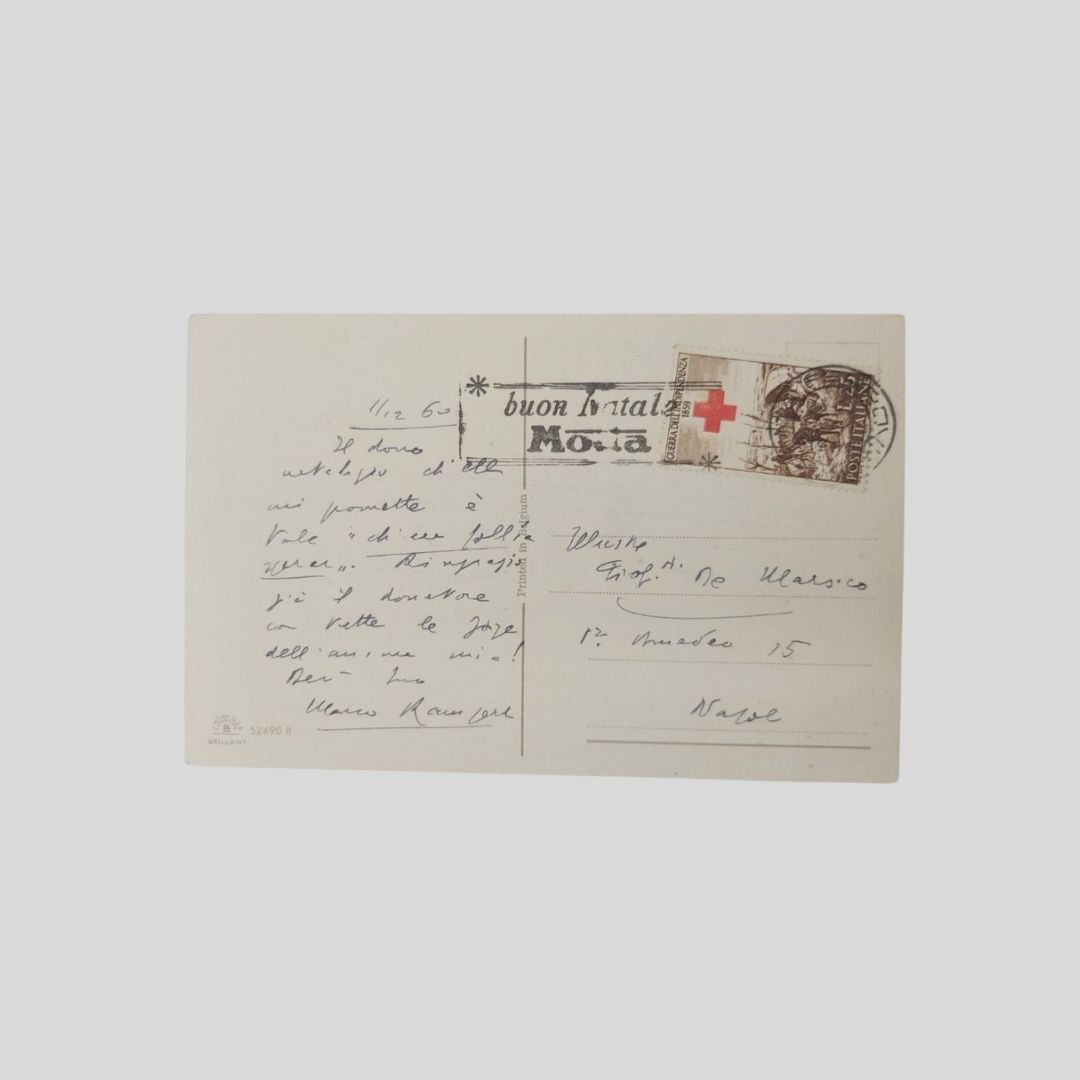 11/12 60
Il dono
natalizio ch'ella
mi promette è
tale
Ringrazio
già il donatore
con tutte le forze
dell'anima mia!
Dev. Suo
Marco Ramperti
BRILLANT
52490 B
Printed in Belgium
buon Natale
Motta
GUERRA DELL'INDIPENDENZA
1859
L.25
POSTE ITALIANE
Illustre
Prof. De Marsico
Pza Amedeo 15
Napoli